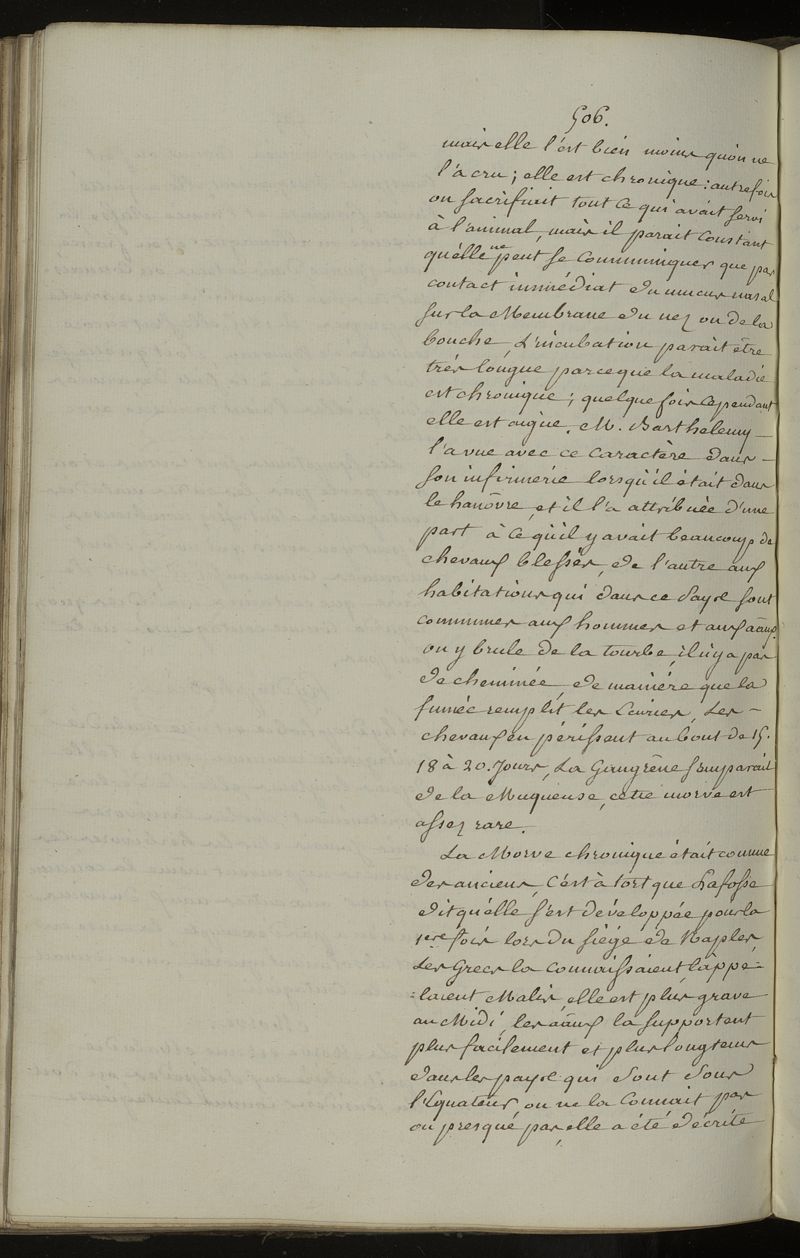 506.
mais elle l'est bien moins qu'on ne
l'a cru; elle est chronique: autrefois
on sacrifiait tout ce qui avait servi
à l'animal, mais il parait constant
qu'elle ne peut se communiquer que par
contact immédiat du mucus nasal
sur la Membrane du nez ou de la
bouche, L'incubation parait être
très longue parceque la maladie
est chronique; quelque fois cependant
elle est aigüe. M. Barthelemy —
l'a vue avec ce caractère dans —
son infirmerie lorsqu'il était dans
le hanôvre, et il l'a attribuée d'une
part à ce qu'il y avait beaucoup de
chevaux blessés, de l'autre aux
habitations qui dans ce Pays sont
communes aux hommes et aux aãux.
on y brule de la tourbe, il n'y a pas
de cheminée, de manière que la
fumée remplit les Ecuries, Les —
chevaux en périssent au bout de 15.
18 à 20. Jours, La Gangrène s'emparait
de la Muqueuse, cette morve est
assez rare.
La Morve chronique était connue
des anciens, C'est à tort que Lafosse
dit qu'elle s'est développée pour la
1ere fois lors du siège de Naples,
Les Grecs la connaissaient l'appe=
=laient Malis, elle est plus grave
au Midi, les aãux la supportent
plus facilement et plus longtems
dans les pays qui sont sous
l'Equateur, on ne la Connait pas
ou presque pas, elle a été décrite